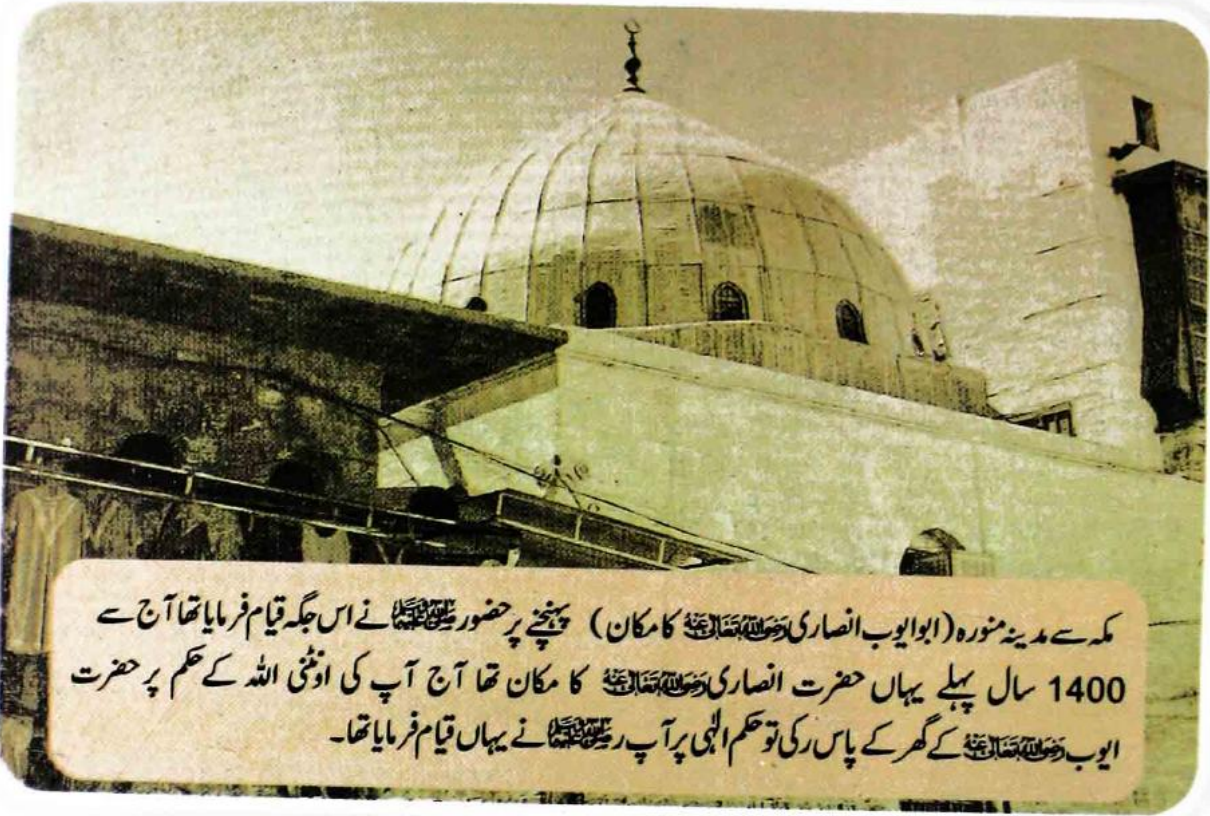 مکہ سے مدینہ منورہ (ابوایوب انصاری رَضِوَاللہُ تَعَالٰی عَنْہُ کا مکان) پہنچنے پر حضور صلی اللہ علیہ وسلم نے اس جگہ قیام فرمایا تھا آج سے
1400 سال پہلے یہاں حضرت انصاری رَضِوَاللہُ تَعَالٰی عَنْہُ کا مکان تھا آج آپ کی اونٹنی اللہ کے حکم پر حضرت
ایوب رَضِوَاللہُ تَعَالٰی عَنْہُ کے گھر کے پاس رکی تو حکم الٰہی پر آپ ر صلی اللہ علیہ وسلم نے یہاں قیام فرمایا تھا۔